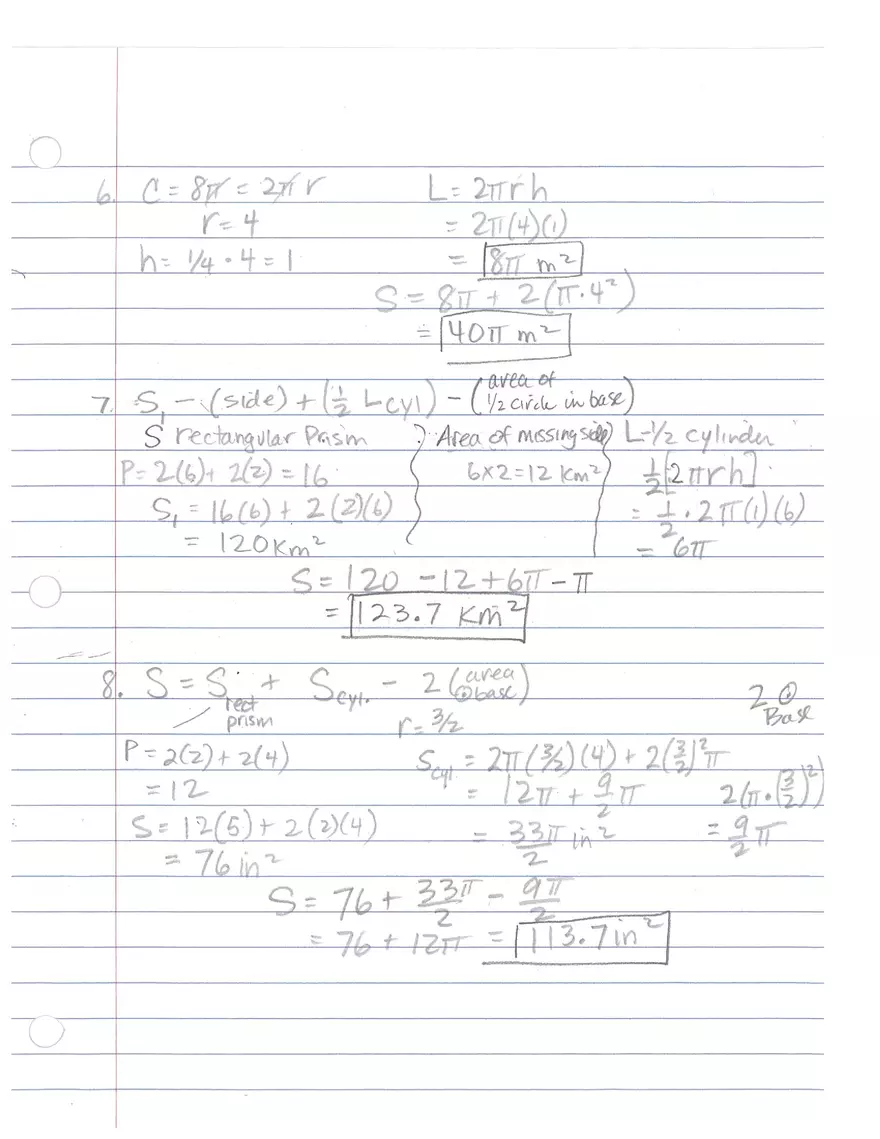 6. C = 8π = 2π r
r = 4
h = 1/4 · 4 = 1
L = 2πrh
= 2π(4)(1)
= 8π m²
S = 8π + 2(π·4²)
= 40π m²
7. S₁ - (side) + (½ Lcyl) - (area of ½ circle in base)
S rectangular Prism
P = 2(6) + 2(2) = 16
S₁ = 16(6) + 2(2)(6)
= 120 Km²
Area of missing side
6 x 2 = 12 Km²
L - ½ cylinder
½[2πrh]
= ½ · 2π(1)(6)
= 6π
S = 120 - 12 + 6π - π
= 123.7 Km²
8. S = S rect prism + Scyl. - 2 (area ⊙ base)
r = 3/2
2 ⊙ Base
P = 2(2) + 2(4)
= 12
S = 12(5) + 2(2)(4)
= 76 in²
Scyl = 2π(3/2)(4) + 2(3/2)²π
= 12π + 9/2 π
= 33π/2 in²
2(π·(3/2)²)
= 9/2 π
S = 76 + 33π/2 - 9π/2
= 76 + 12π = 113.7 in²